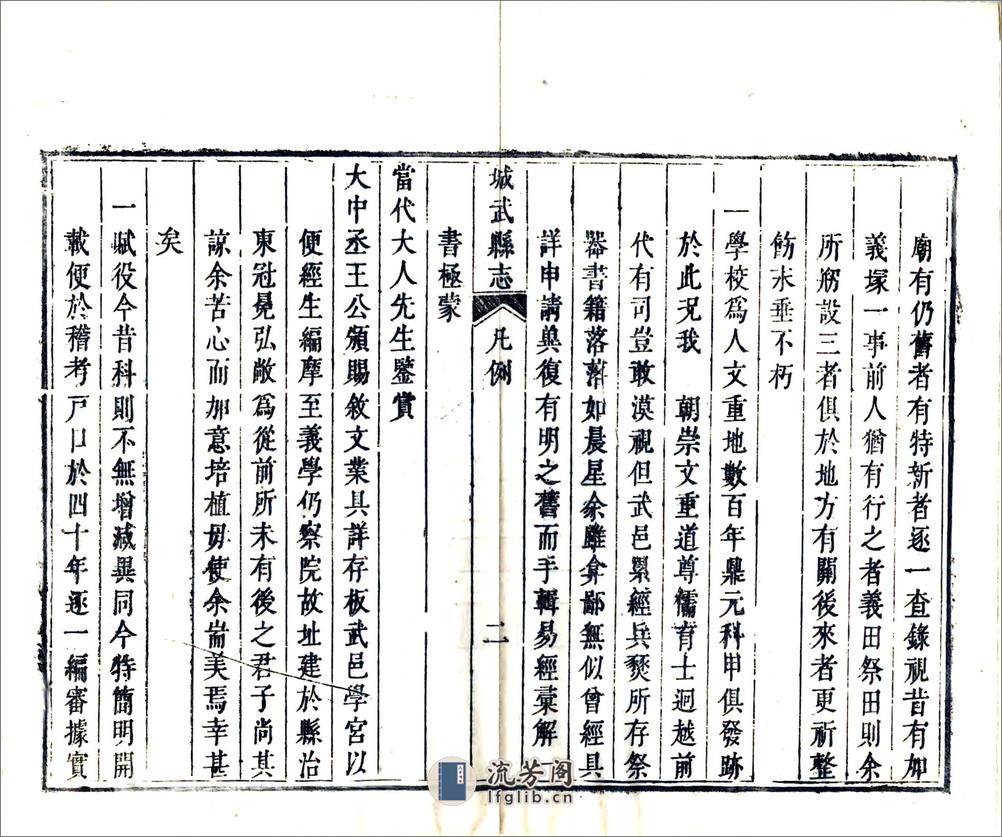 廟有仍舊者有特新者逐一查錄視昔有加
義塚一事前人猶有行之者義田祭田則余
所剏設三者俱於地方有關後來者更祈整
飭永垂不朽
一學校爲人文重地數百年鼎元科甲俱發跡
於此况我　朝崇文重道尊儒育士迥越前
代有司豈敢漠視但武邑累經兵燹所存祭
器書籍落落如晨星余雖弇鄙無似曾經具
詳申請興復有明之舊而手輯易經稾解
城武縣志　凡例　二
書極蒙
當代大人先生鑒賞
大中丞王公頒賜敘文業具詳存板武邑學宮以
便經生編摩至義學仍察院故址建於縣治
東冠冕弘敞爲從前所未有後之君子尚其
諒余苦心而加意培植毋使余耑美焉幸甚
矣
一賦役今昔科則不無增減異同今特簡明開
載便於稽考戸口於四十年逐一編審據實
流芳阁
lfglib.cn